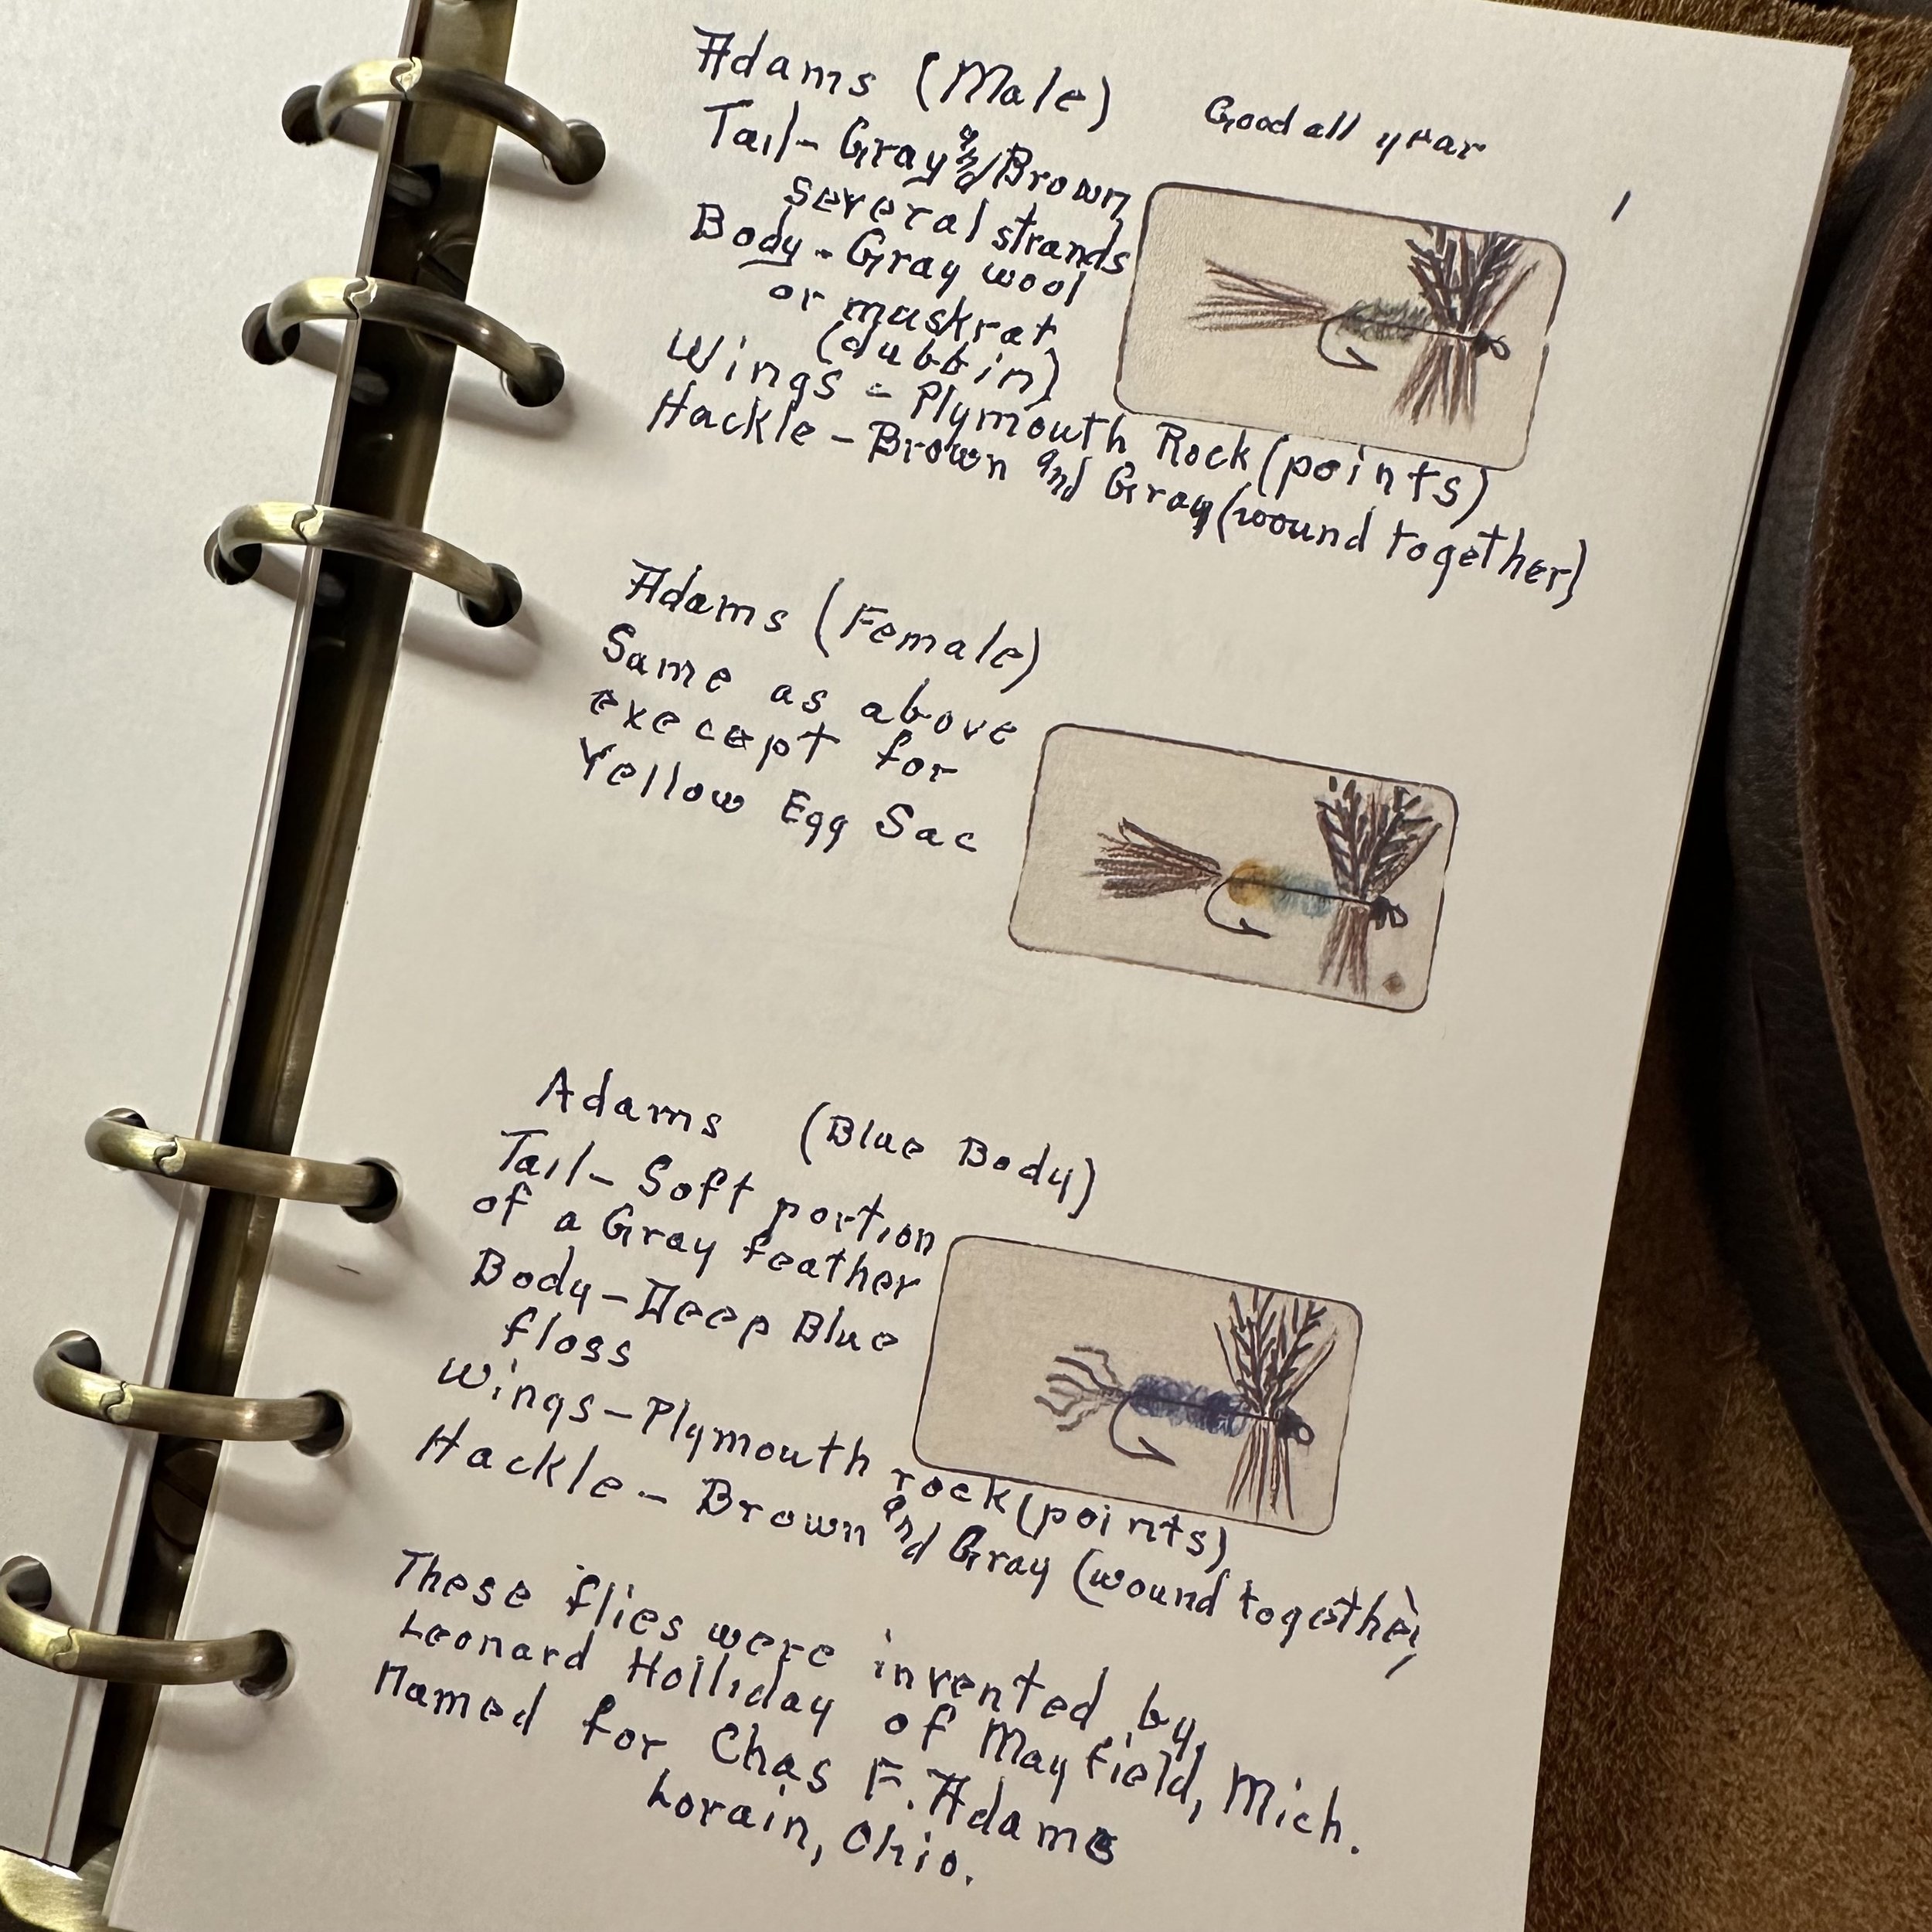 Adams (Male)
Good all year
1
Tail- Gray and/Brown
several strands
Body - Gray wool
or muskrat
(dubbin)
Wings - Plymouth Rock (points)
Hackle - Brown and Gray (wound together)
Adams (Female)
Same as above
execept for
Yellow Egg Sac
Adams (Blue Body)
Tail- Soft portion
of a Gray feather
Body - Deep Blue
floss
Wings - Plymouth rock (points)
Hackle - Brown and Gray (wound together)
These flies were invented by,
Leonard Holliday of Mayfield, Mich.
Named for Chas F. Adams
Lorain, Ohio.